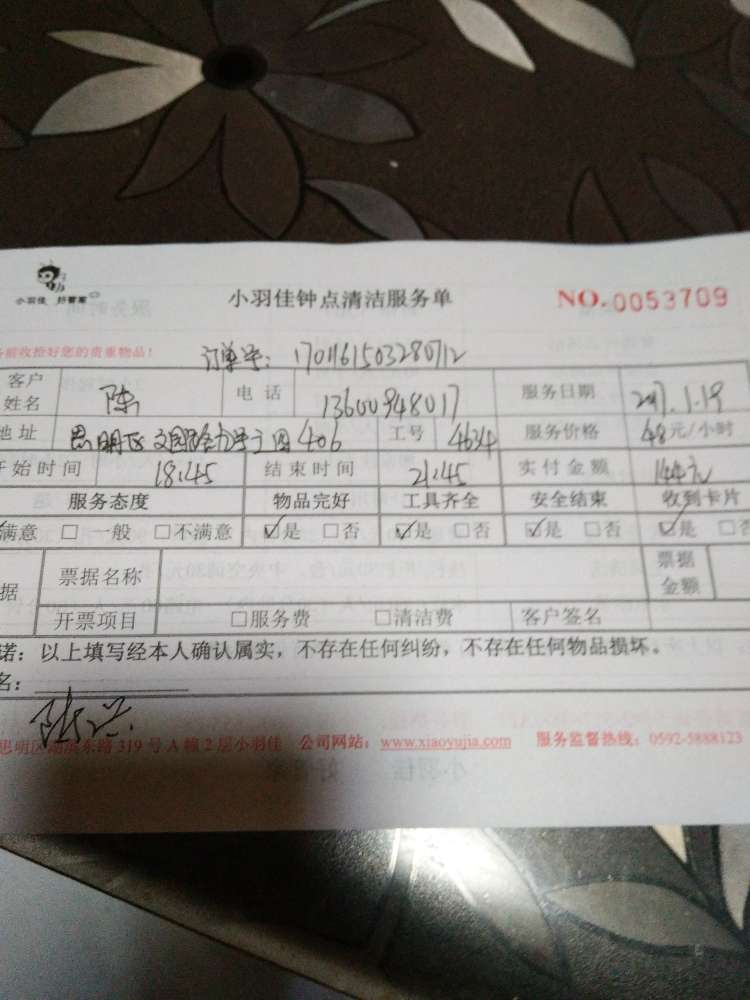 小羽佳 好管家
小羽佳钟点清洁服务单
NO.0053709
前收拾好您的贵重物品!
订单号: 1701161503280712
客户姓名 陈 电话 13600948017 服务日期 2017.1.19
地址 思明区 406 工号 4634 服务价格 48元/小时
开始时间 18:45 结束时间 21:45 实付金额 144元
服务态度 物品完好 工具齐全 安全结束 收到卡片
满意 □一般 □不满意 ☑是 □否 ☑是 □否 ☑是 □否 ☑是 □否
据 票据名称 票据金额
开票项目 □服务费 □清洁费 客户签名
诺:以上填写经本人确认属实,不存在任何纠纷,不存在任何物品损坏。
名:
思明区湖滨东路319号A幢2层小羽佳 公司网站:www.xiaoyujia.com 服务监督热线:0592-5888123